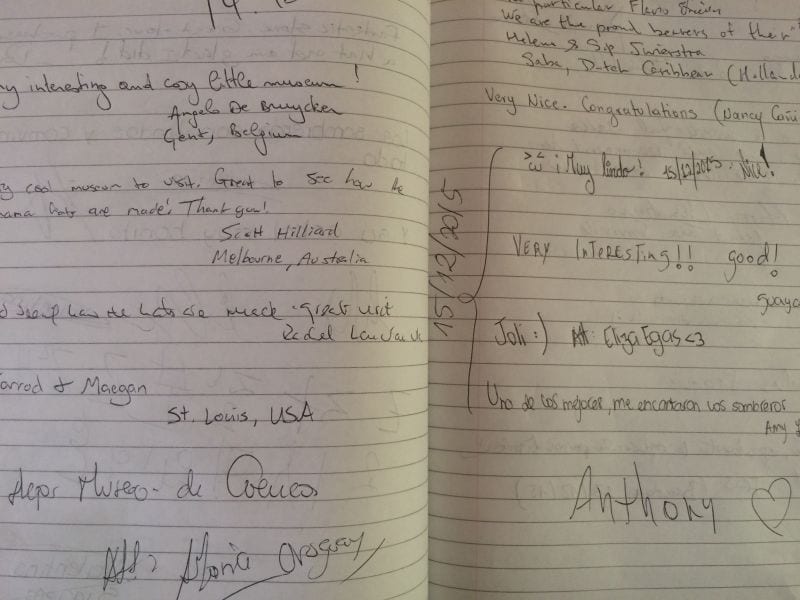 interesting and cosy little museum!
Angelo De Bruycker
Gent, Belgium
cool museum to visit. Great to see how the
hats are made! Thank you!
Scott Hilliard
Melbourne, Australia
how the hats are made - great visit
& Maegan
St. Louis, USA
Museo de Cuenca
Att:
particular
We are the proud bearers of the
Helene & Sip Swierstra
Saba, Dutch Caribbean (Holland
Very Nice. Congratulations (Nancy
15/12/2015
¡Muy lindo! 15/12/2015. Nice!
VERY INTERESTING!! good!
Joli :) Att: Eliza Egas <3
Uno de los mejores, me encantaron los sombreros
Amy
Anthony